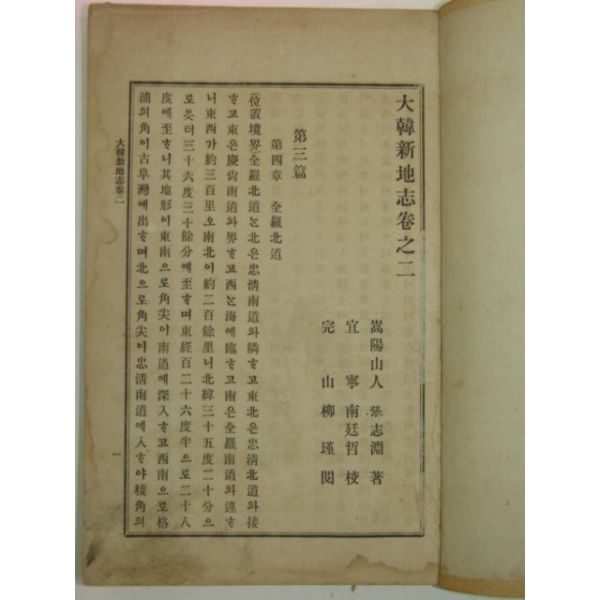 大韓新地志卷之二
嵩陽山人 張志淵 著
宜寧 南廷哲 校
完山 柳瑾 閱
第三篇
第四章 全羅北道
(位置境界)全羅北道는北은忠淸南道와隣ᄒᆞ고東北은忠淸北道와接
ᄒᆞ고東은慶尙南道와界ᄒᆞ고西는海에臨ᄒᆞ고南은全羅南道와連ᄒᆞ
니東西가約三百里오南北이約二百餘里니北緯三十五度二十分으
로붓터三十六度三十餘分에至ᄒᆞ며東經百二十六度半으로二十八
度에至ᄒᆞ니其地形이東南으로角尖이南道에深入ᄒᆞ고西南으로格
浦의角이古阜灣에出ᄒᆞ며北으로角尖이忠淸南道에入ᄒᆞ야稜角의
大韓新地志卷二
一